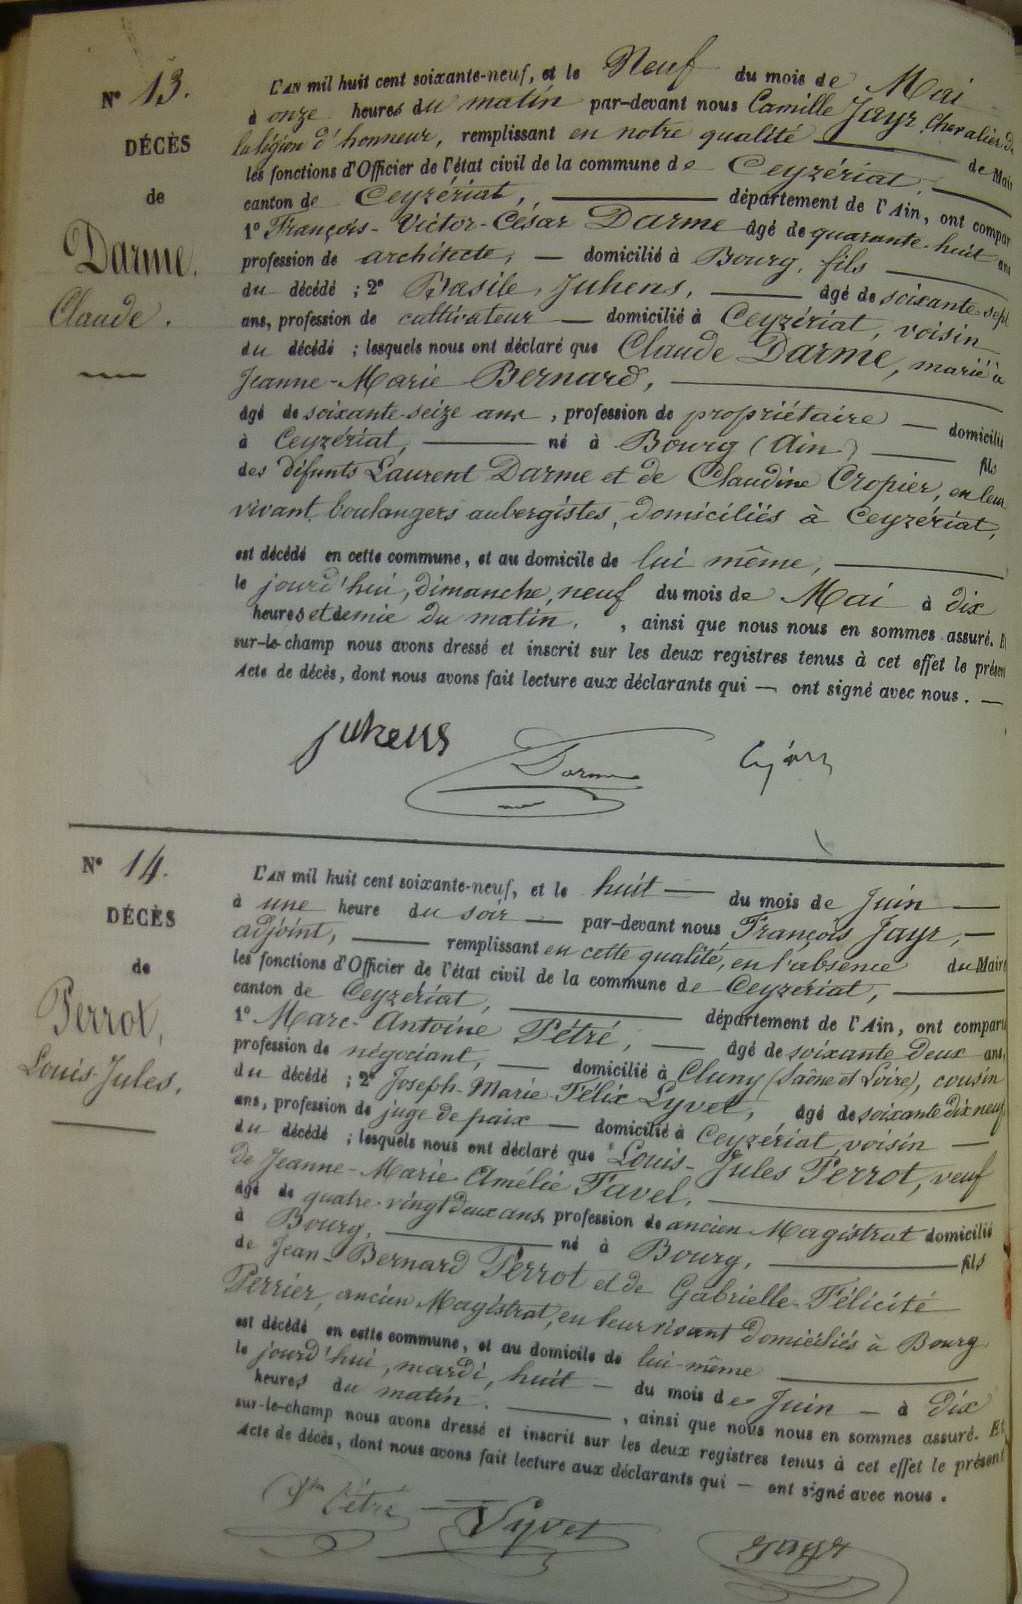 N° 13.
DÉCÈS
de
Darme,
Claude.
L'AN mil huit cent soixante-neuf, et le Neuf du mois de Mai
à onze heures du matin par-devant nous Camille Jayr, Chevalier de
la légion d'honneur, remplissant en notre qualité de Maire
les fonctions d'Officier de l'état civil de la commune de Ceyzériat,
canton de Ceyzériat, département de l'Ain, ont compar
1° François-Victor-César Darme âgé de quarante-huit ans
profession de architecte, domicilié à Bourg, fils
du décédé ; 2° Basile Juhens, âgé de soixante-sept
ans, profession de cultivateur domicilié à Ceyzériat, voisin
du décédé ; lesquels nous ont déclaré que Claude Darme, marié à
Jeanne-Marie Bernard,
âgé de soixante-seize ans, profession de propriétaire domicilié
à Ceyzériat, né à Bourg (Ain) fils
des défunts Laurent Darme et de Claudine Cropier, en leur
vivant boulangers aubergistes, domiciliés à Ceyzériat,
est décédé en cette commune, et au domicile de lui même,
le jourd'hui, dimanche, neuf du mois de Mai à dix
heures et demie du matin, ainsi que nous nous en sommes assuré. Et
sur-le-champ nous avons dressé et inscrit sur les deux registres tenus à cet effet le présent
Acte de décès, dont nous avons fait lecture aux déclarants qui — ont signé avec nous. —
Juhens Darme C. Jayr
N° 14.
DÉCÈS
de
Perrot,
Louis Jules,
L'AN mil huit cent soixante-neuf, et le huit — du mois de Juin —
à une heure du soir — par-devant nous François Jayr, —
adjoint, remplissant en cette qualité, en l'absence du Maire
les fonctions d'Officier de l'état civil de la commune de Ceyzeriat,
canton de Ceyzeriat, département de l'Ain, ont comparu
1° Marc-Antoine Pétré, — âgé de soixante deux ans,
profession de négociant, — domicilié à Cluny (Saône et Loire), cousin
du décédé ; 2° Joseph-Marie-Félix Lyvet, âgé de soixante dix neuf
ans, profession de juge de paix — domicilié à Ceyzériat, voisin —
du décédé ; lesquels nous ont déclaré que Louis-Jules Perrot, veuf
de Jeanne-Marie Amélie Favel,
âgé de quatre-vingt deux ans, profession de ancien Magistrat domicilié
à Bourg, né à Bourg, fils
de Jean-Bernard Perrot et de Gabrielle-Félicité
Perrier, ancien Magistrat, en leur vivant domiciliés à Bourg
est décédé en cette commune, et au domicile de lui-même
le jourd'hui, mardi, huit — du mois de Juin — à dix
heures du matin. , ainsi que nous nous en sommes assuré. Et
sur-le-champ nous avons dressé et inscrit sur les deux registres tenus à cet effet le présent
Acte de décès, dont nous avons fait lecture aux déclarants qui — ont signé avec nous.
Pétré Lyvet Jayr